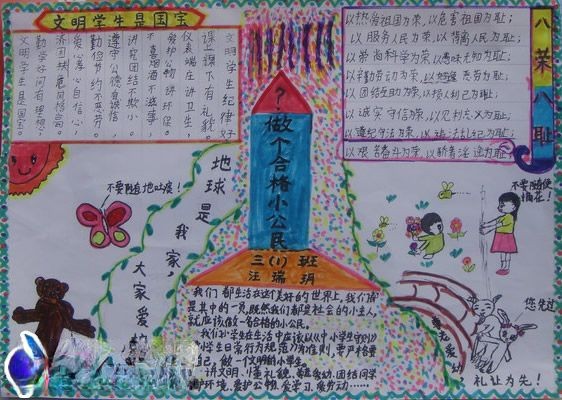 文明学生是国宝
文明学生纪律好
课上课下有礼貌。
仪表端庄讲卫生,
爱护公物讲环保。
不喜烟酒不滋事,
讲究团结不欺小。
遵守公德真诚信,
勤俭节约不怠劳。
爱心善心自信心
济困扶危风格高。
勤学好问有理想,
文明学生是国宝。
八荣八耻
以热爱祖国为荣,以危害祖国为耻;
以服务人民为荣,以背离人民为耻;
以崇尚科学为荣,以愚昧无知为耻;
以辛勤劳动为荣,以好逸恶劳为耻;
以团结互助为荣,以损人利己为耻;
以诚实守信为荣,以见利忘义为耻;
以遵纪守法为荣,以违法乱纪为耻;
以艰苦奋斗为荣,以骄奢淫逸为耻;
?
做个合格小公民
三(1)班
汪瑞玥
不要随地吐痰!
地球是我家,
大家爱护
不要随便
摘花!
您先过
尊老爱幼
礼让为先!
我们都生活在这个美好的世界上,我们都
是其中的一员,既然我们都是社会的小主人,
就应该做一合格的小公民。
我们小学生在生活中应该以《中小学生守则》
小学生日常行为规范》为准则,要严格要
己,做一个文明的小学生。
讲文明、懂礼貌、尊敬爱幼、团结同学
护环境、爱护公物、爱学习、爱劳动……